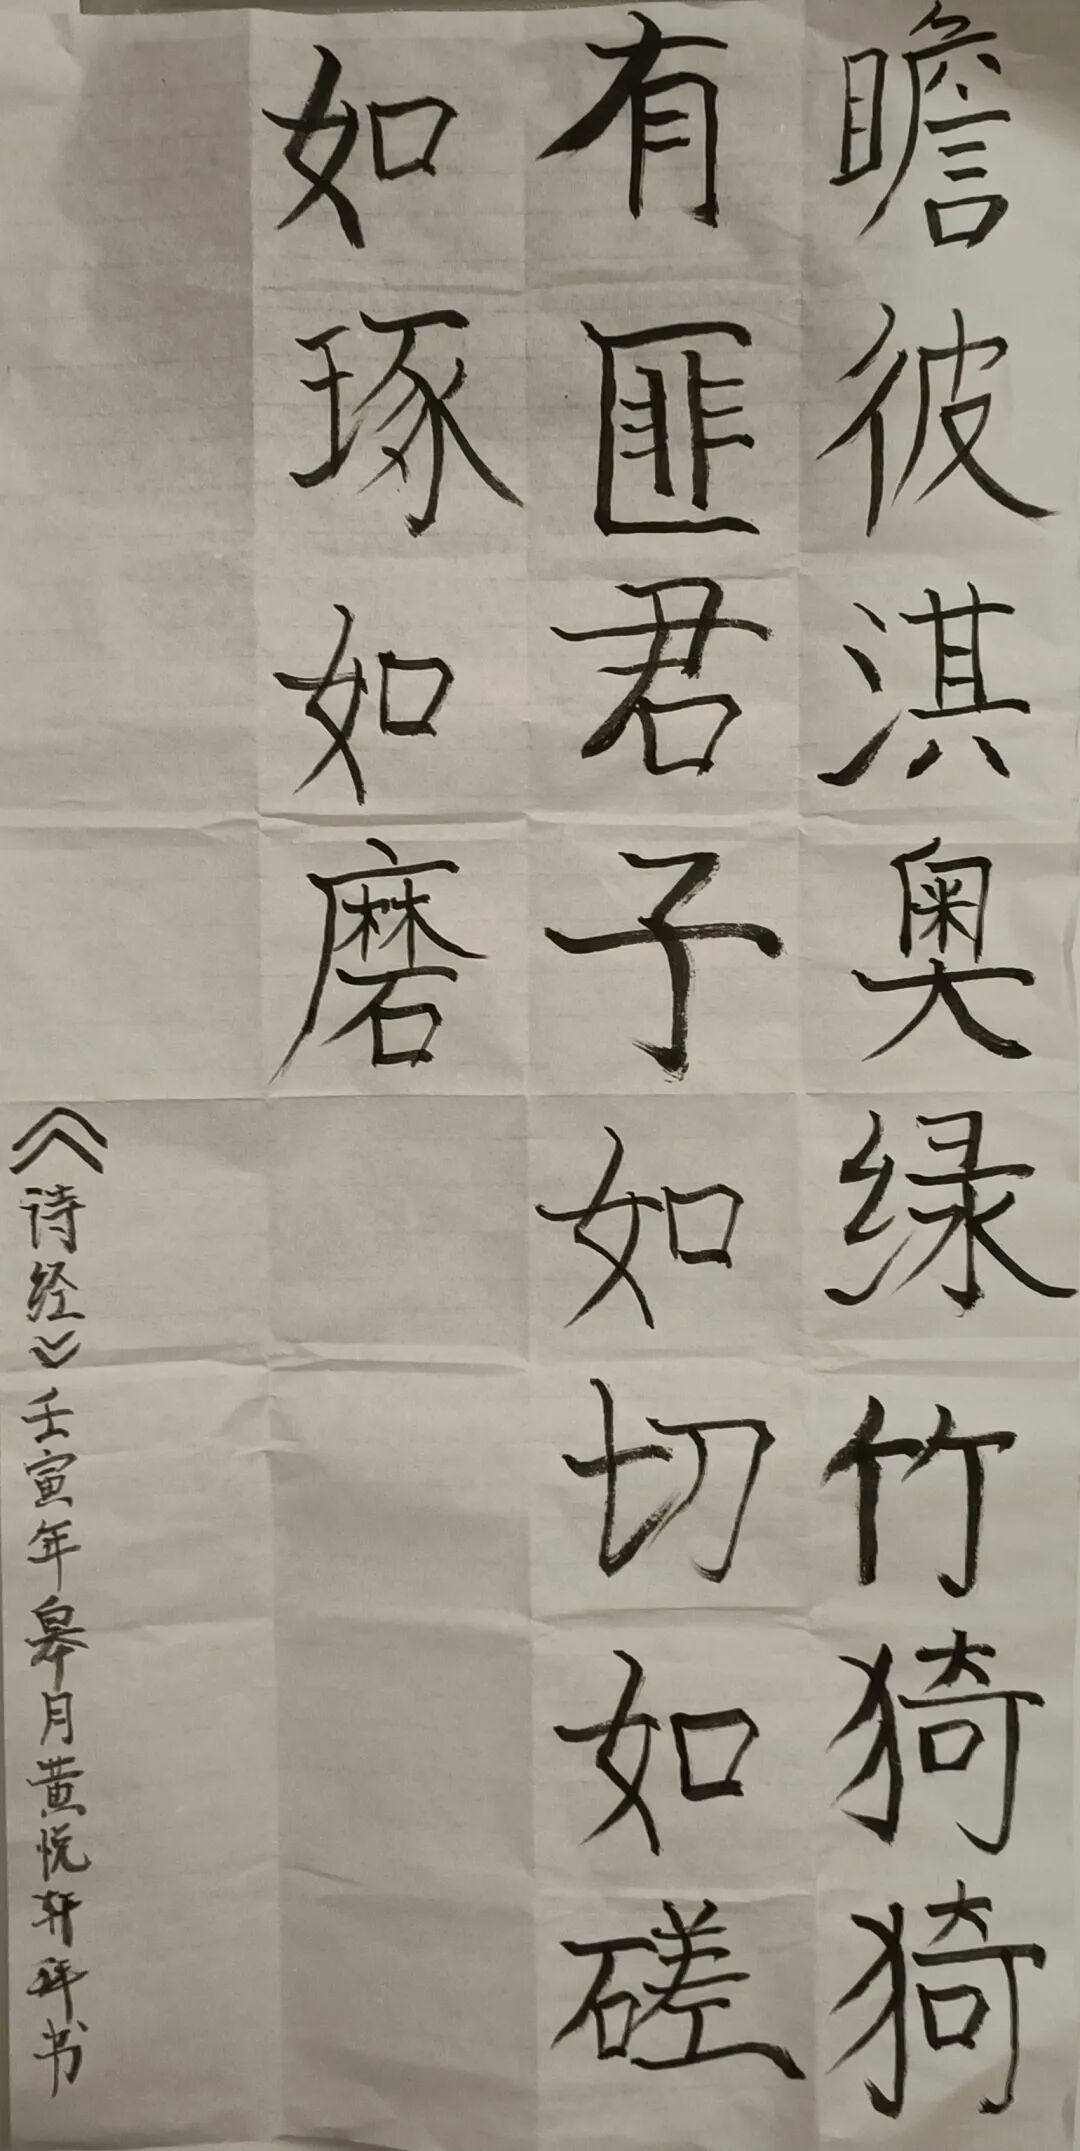 瞻彼淇奥绿竹猗猗
有匪君子如切如磋
如琢如磨
《诗经》壬寅年皋月黄悦轩拜书